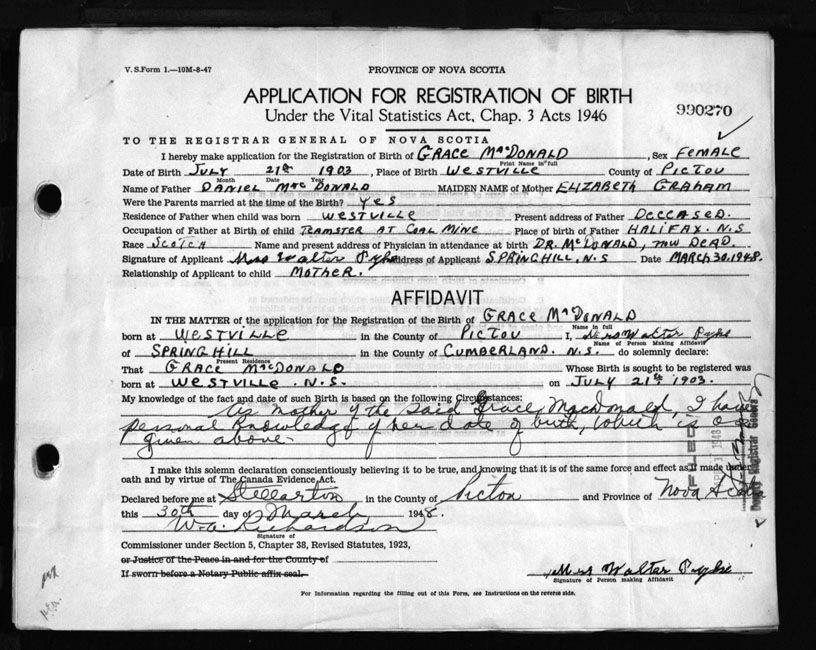 V. S. Form 1.—10M-8-47
PROVINCE OF NOVA SCOTIA
APPLICATION FOR REGISTRATION OF BIRTH
990270
Under the Vital Statistics Act, Chap. 3 Acts 1946
TO THE REGISTRAR GENERAL OF NOVA SCOTIA
I hereby make application for the Registration of Birth of GRACE MacDONALD, Sex FEMALE
Print Name in full
Date of Birth JULY 21st 1903, Place of Birth WESTVILLE County of PICTOU
Month Date Year
Name of Father DANIEL MacDONALD MAIDEN NAME of Mother ELIZABETH GRAHAM
Were the Parents married at the time of the Birth? YES
Residence of Father when child was born WESTVILLE Present address of Father DECEASED.
Occupation of Father at Birth of child TEAMSTER AT COAL MINE Place of birth of Father HALIFAX. N.S
Race SCOTCH Name and present address of Physician in attendance at birth DR. McDONALD, NOW DEAD.
Signature of Applicant Mrs Walter Pyke Address of Applicant SPRINGHILL, N.S Date MARCH 30. 1948.
Relationship of Applicant to child MOTHER.
AFFIDAVIT
IN THE MATTER of the application for the Registration of the Birth of GRACE MacDONALD
Name in full
born at WESTVILLE in the County of PICTOU I, Mrs Walter Pyke
Name of Person Making Affidavit
of SPRINGHILL in the County of CUMBERLAND. N.S. do solemnly declare:
Present Residence
That GRACE MacDONALD Whose Birth is sought to be registered was
born at WESTVILLE. N.S. on JULY 21st 1903.
My knowledge of the fact and date of such Birth is based on the following Circumstances:
As mother of the said Grace Macdonald, I have
personal knowledge of her date of birth, which is as
given above
I make this solemn declaration conscientiously believing it to be true, and knowing that it is of the same force and effect as if made under
oath and by virtue of The Canada Evidence Act.
Declared before me at Stellarton in the County of Pictou and Province of Nova Scotia
this 30th day of March 1948.
W. A. Richardson
Signature of
Commissioner under Section 5, Chapter 38, Revised Statutes, 1923,
or Justice of the Peace in and for the County of
If sworn before a Notary Public affix seal.
Mrs Walter Pyke
Signature of Person making Affidavit
For Information regarding the filling out of this Form, see Instructions on the reverse side.
FILED
1948
Deputy Registrar General